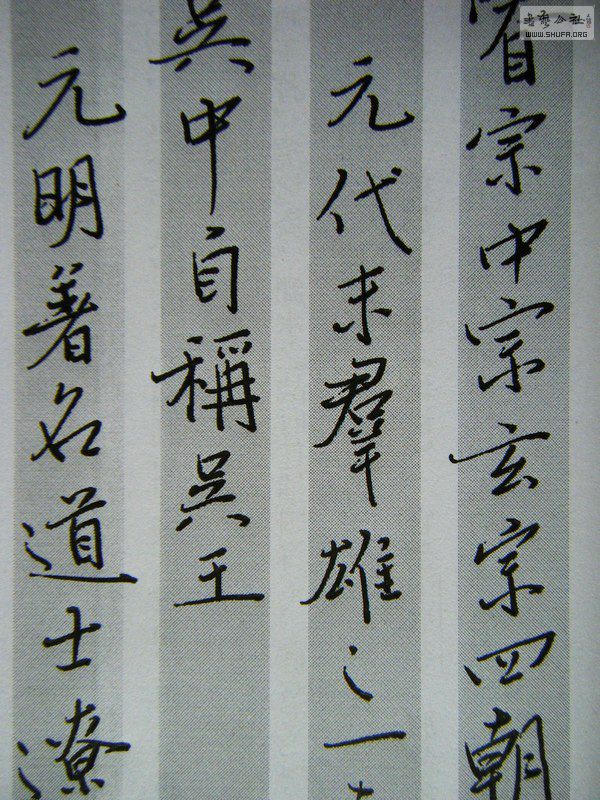 睿宗中宗玄宗四朝
元代末羣雄之一
吳中自稱吳王
元明著名道士遼
WWW.SHUFA.ORG